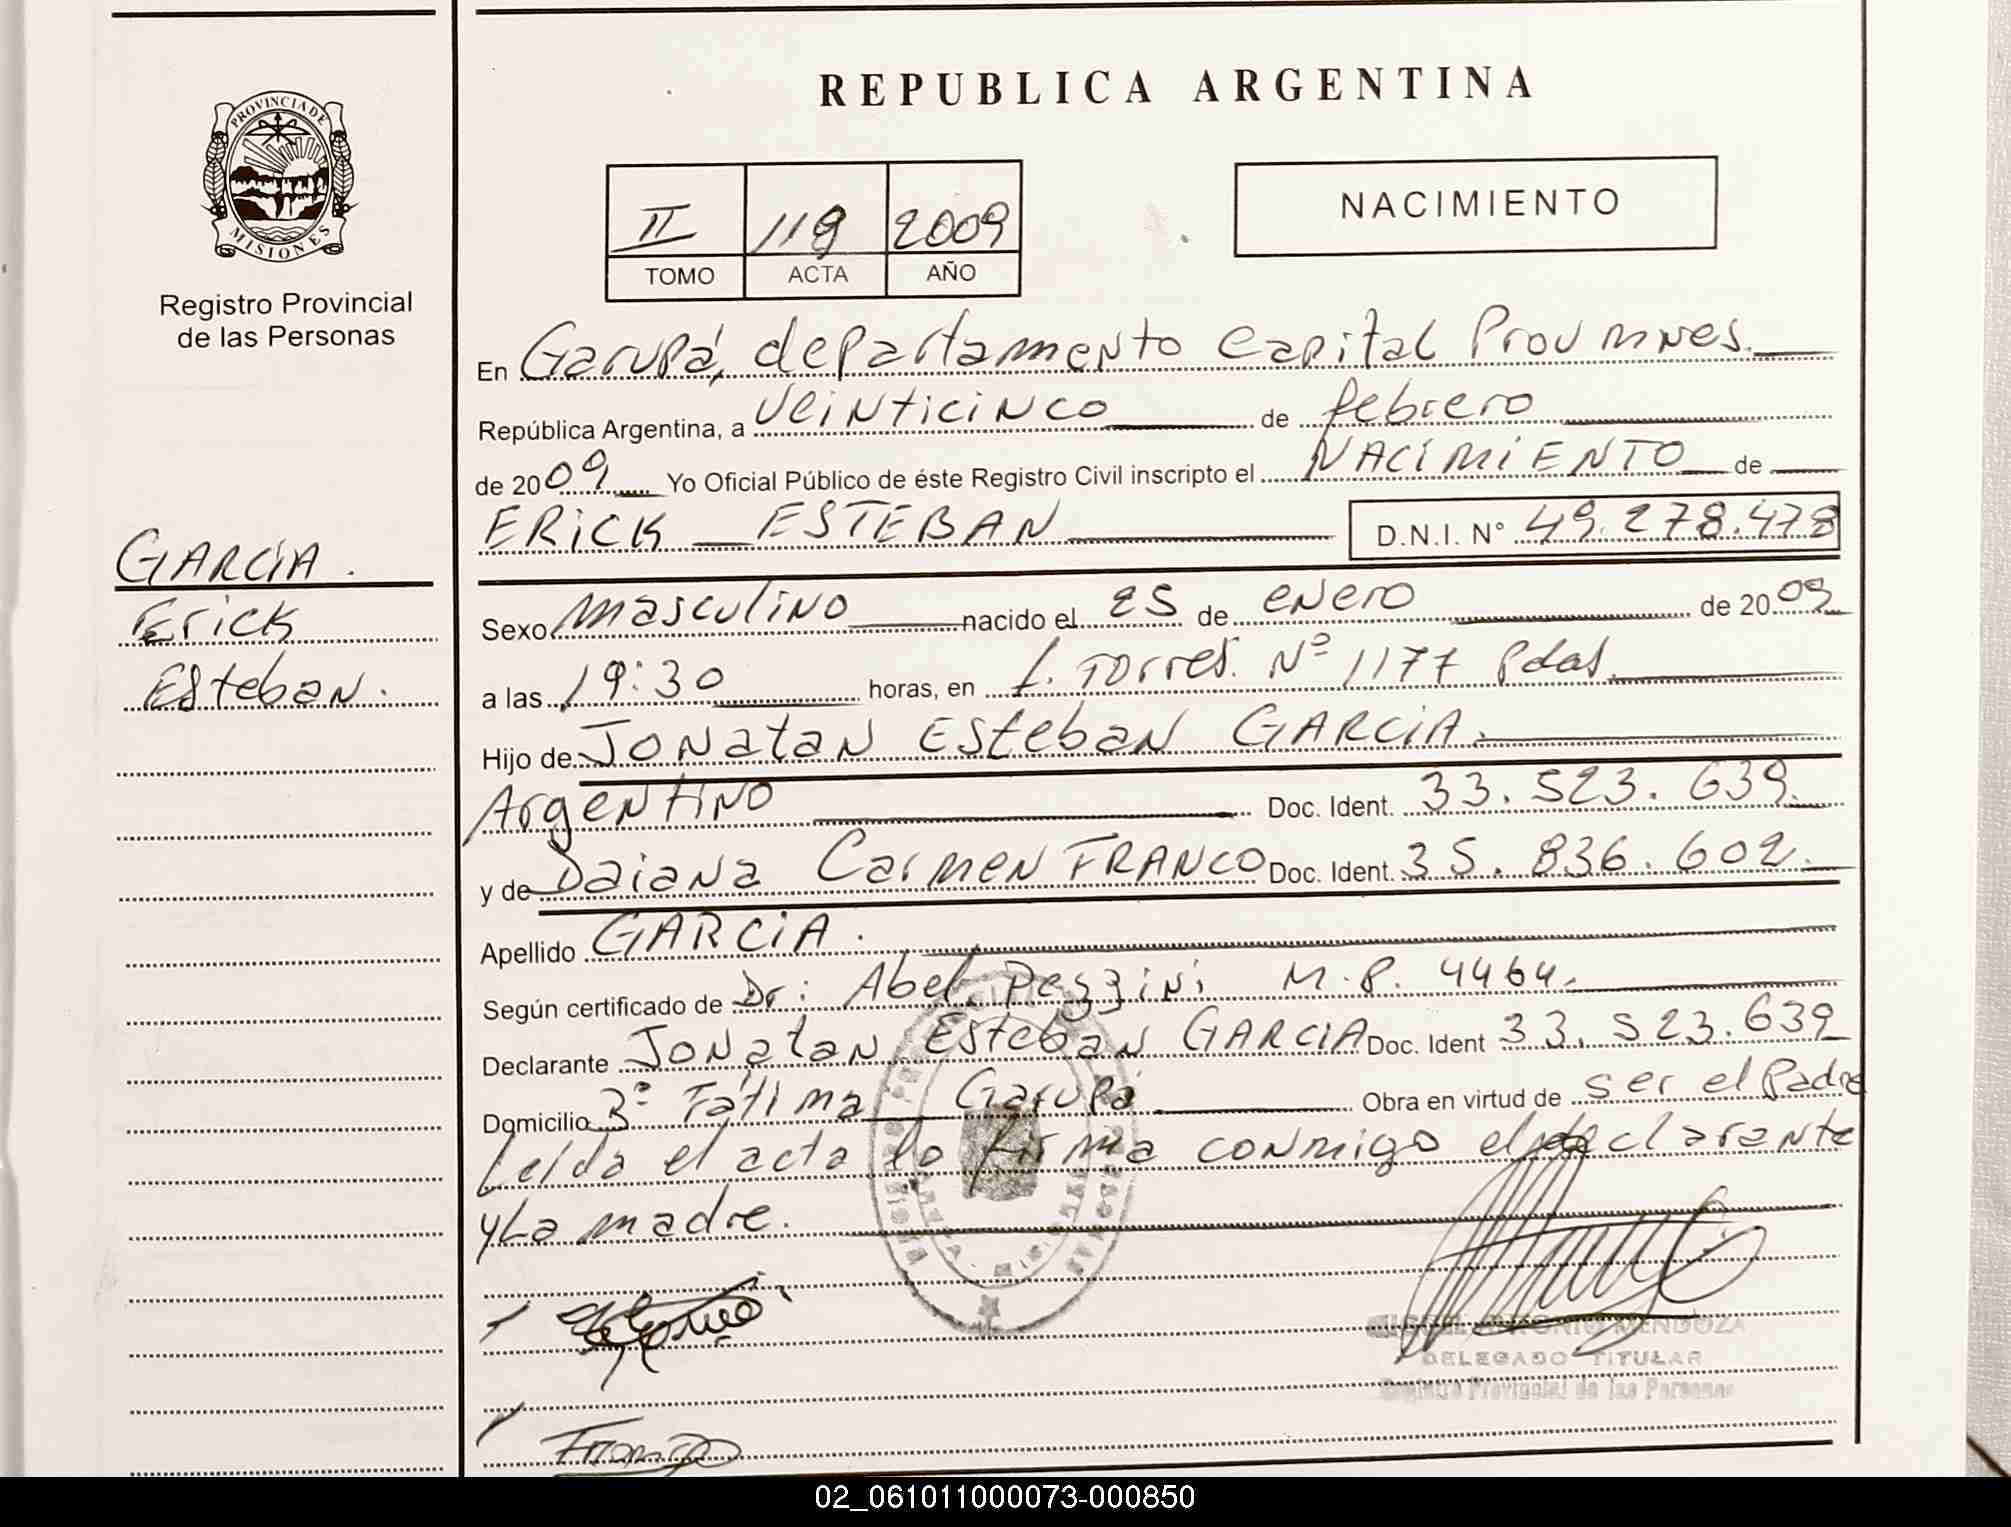 REPUBLICA ARGENTINA
PROVINCIA DE
MISIONES
Registro Provincial
de las Personas
II 119 2009
TOMO ACTA AÑO
NACIMIENTO
En Garupá, departamento Capital Prov mnes.
República Argentina, a veinticinco de febrero
de 2009 Yo Oficial Público de éste Registro Civil inscripto el NACIMIENTO de
ERICK ESTEBAN D.N.I. N° 49.278.478
GARCIA.
Erick
Esteban.
Sexo masculino nacido el 25 de enero de 2009
a las 19:30 horas, en L. Torres. Nº 1177 Pdas.
Hijo de Jonatan Esteban GARCIA.
Argentino Doc. Ident. 33.523.639.
y de Daiana Carmen FRANCO Doc. Ident. 35.836.602.
Apellido GARCIA.
Según certificado de Dr: Abel Pezzini M.P. 4464.
Declarante Jonatan Esteban GARCIA Doc. Ident 33.523.639
Domicilio Bº Fátima Garupá Obra en virtud de ser el Padre
Leída el acta lo firma conmigo el declarante
y La madre.
ANTONIO MENDOZA
DELEGADO TITULAR
Registro Provincial de las Personas
Franco
02_061011000073-000850